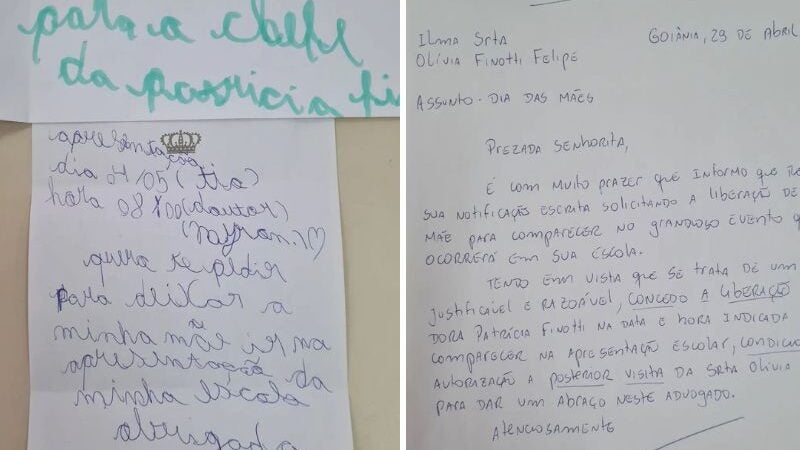 para a chefe
da patricia fi
apresentação
dia 04/05 (tia)
hora 08:00 (doutor)
queria te pidir
para deixar a
minha mãe ir na
apresentação da
minha escola
obrigada
Ilma Srta
Goiânia, 29 de Abril
Olívia Finotti Felipe
Assunto - Dia das Mães
Prezada Senhorita,
É com muito prazer que informo que
sua notificação escrita solicitando a liberação de
mãe para comparecer no grandioso evento q
ocorrerá em sua escola.
Tendo em vista que se trata de um
justificável e razoável, concedo a liberação
dora Patrícia Finotti na data e hora indicada
comparecer na apresentação escolar, condicio
autorização a posterior visita da Srta Olívia
para dar um abraço neste advogado.
Atenciosamente